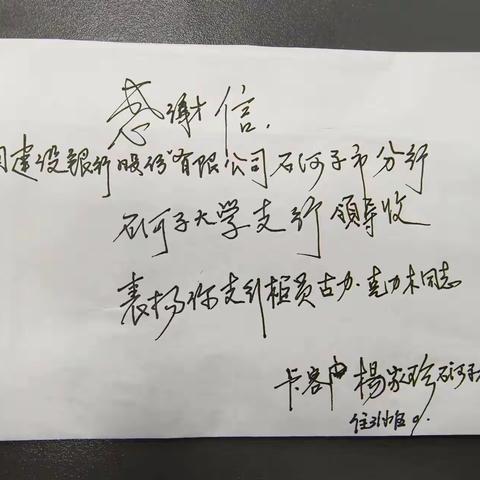 感谢信
国建设银行股份有限公司石河子市分行
石河子大学支行领导收
表扬你支行柜员古力·克力木同志
卡客户楊家珍石河子
住31小区